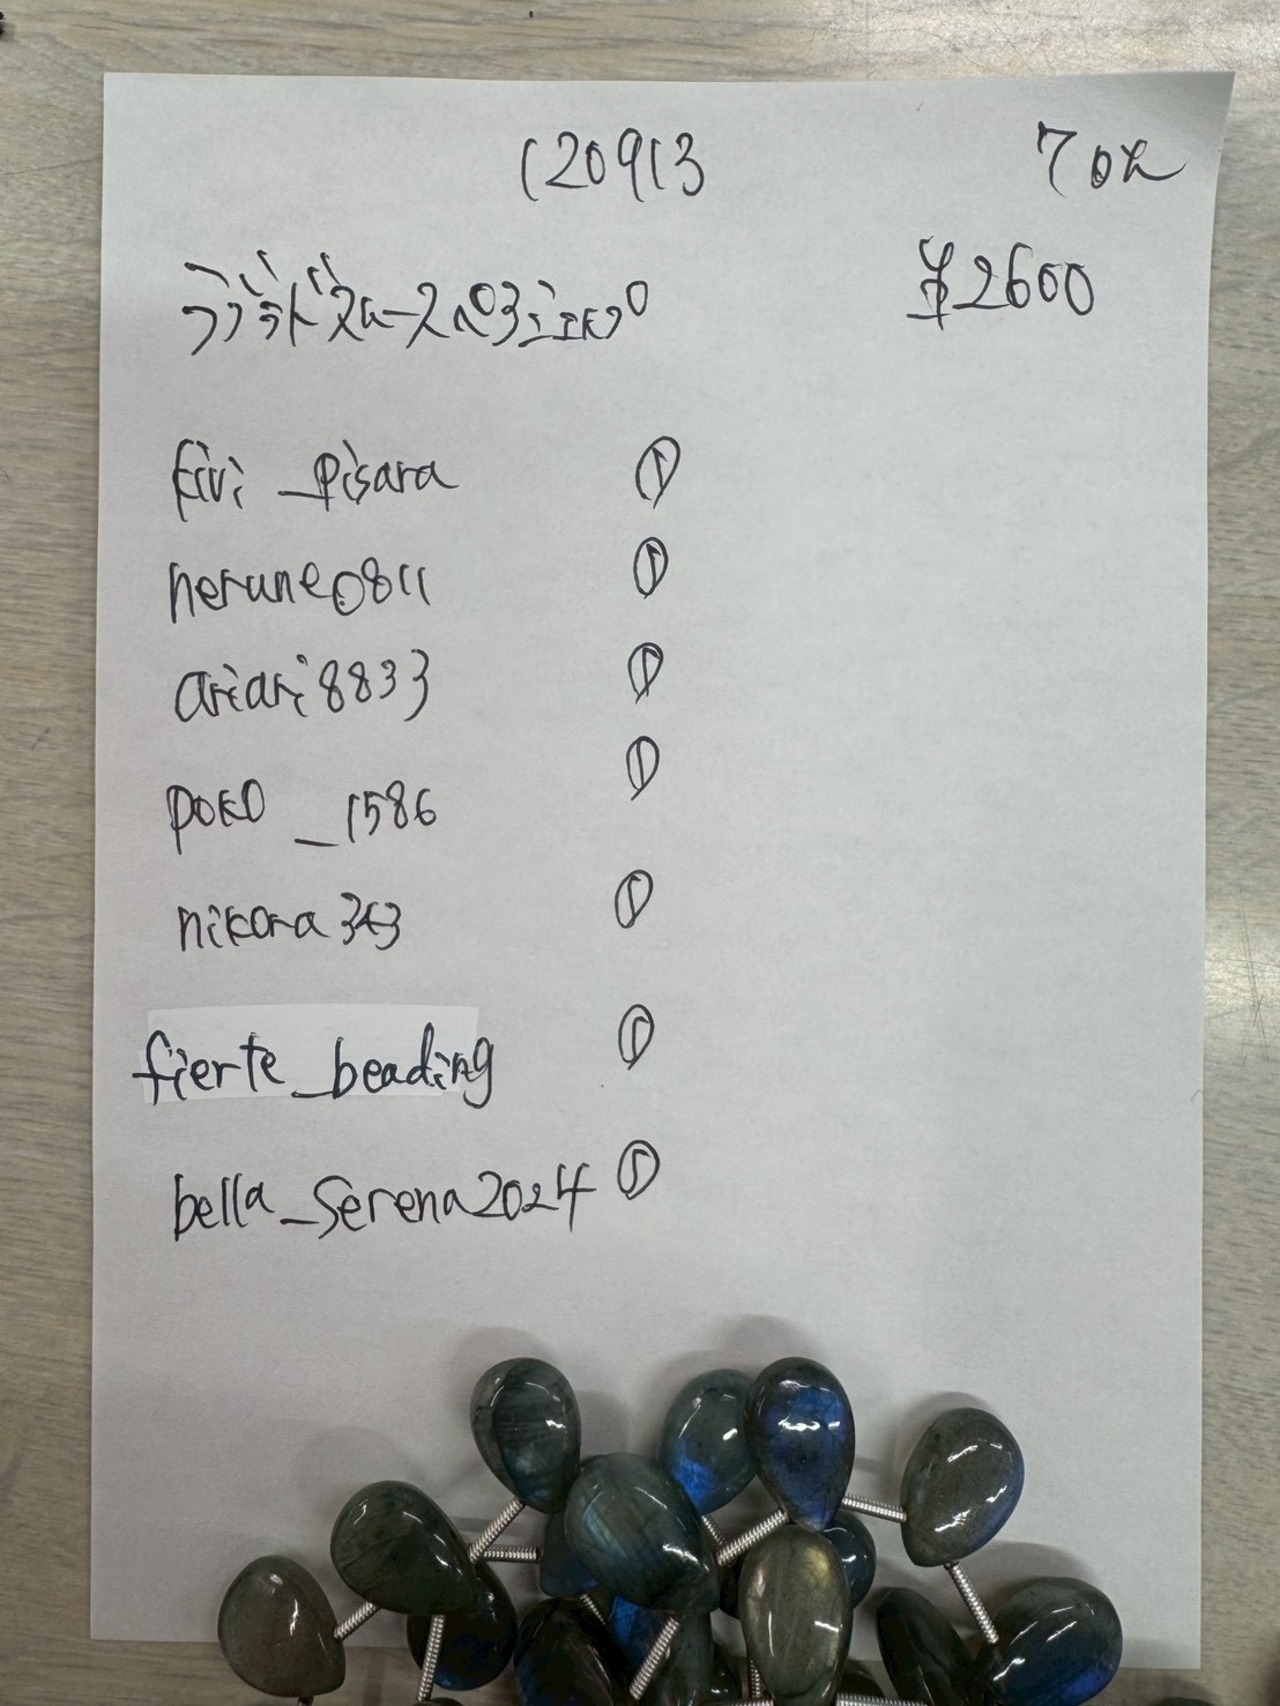 120913 70%
ラブラドライトスムースペアシェイプ ¥2600
kivi_pisara ①
nerune0811 ①
ariari8833 ①
poko_1586 ①
nikora343 ①
fierte_beading ①
bella_serena2024 ①